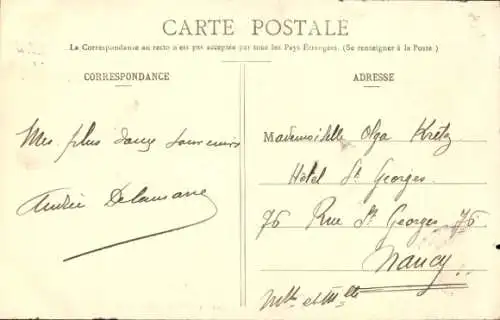 CARTE POSTALE
La Correspondance au recto n'est pas acceptée par tous les Pays Étrangers. (Se renseigner à la Poste.)
CORRESPONDANCE
Mes plus doux souvenirs
Andrée Delamare
ADRESSE
Mademoiselle Olga Kretz
Hôtel St Georges
76 Rue St Georges 76
Nancy
Mthe et Mlle